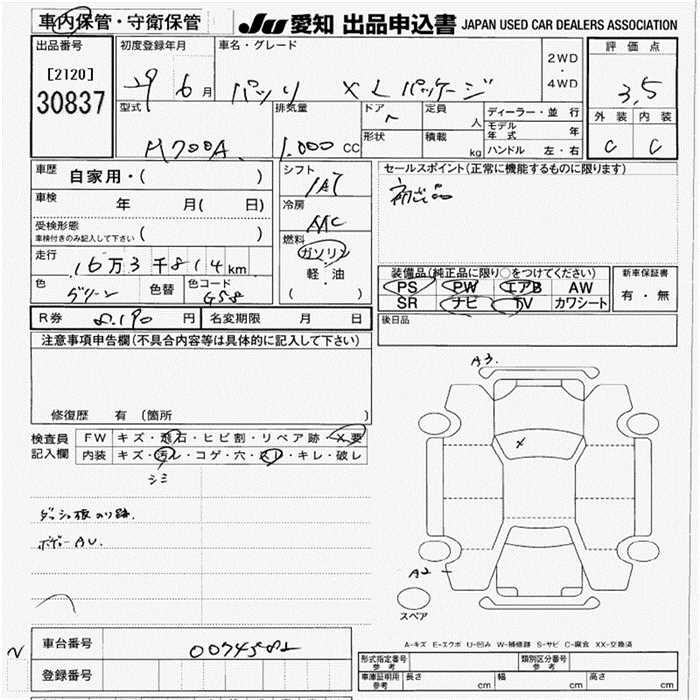 車内保管・守衛保管 JU 愛知 出品申込書 JAPAN USED CAR DEALERS ASSOCIATION
出品番号 初度登録年月 車名・グレード 評価点
[2120] 29 6月 パッソ XLパッケージ 2WD・4WD 3.5
30837
型式 排気量 ドア 定員 人 ディーラー・並行 外装 内装
M700A 1.000cc 形状 積載 kg モデル年式 年 C C
ハンドル 左・右
車歴 自家用・( ) シフト セールスポイント(正常に機能するものに限ります)
車検 年 月( 日) 1AT
受検形態 冷房 AAC
車検付きのみ記入して下さい ( ) 燃料
走行 16万3千814km ガソリン 装備品(純正品に限り○をつけてください) 新車保証書
色 グリーン 色替 色コード G58 軽・油 PS PW エアB AW 有・無
( ) SR ナビ TV カワシート
R券 8.190円 名変期限 月 日 後日品
注意事項申告欄(不具合内容等は具体的に記入して下さい)
A3.
X
修復歴 有(箇所 )
検査員 FW キズ・飛石・ヒビ割・リペア跡・X要
記入欄 内装 キズ・汚レ・コゲ・穴・スレ・キレ・破レ
シミ
ダッシュ板のり跡.
ボデーAU.
A2
スペア
車台番号
A-キズ E-エクボ U-凹み W-補修跡 S-サビ C-腐食 XX-交換済
登録番号 形式指定番号 参考 類別区分番号 参考
車庫証明用 参考 長さ cm 幅 cm 高さ cm